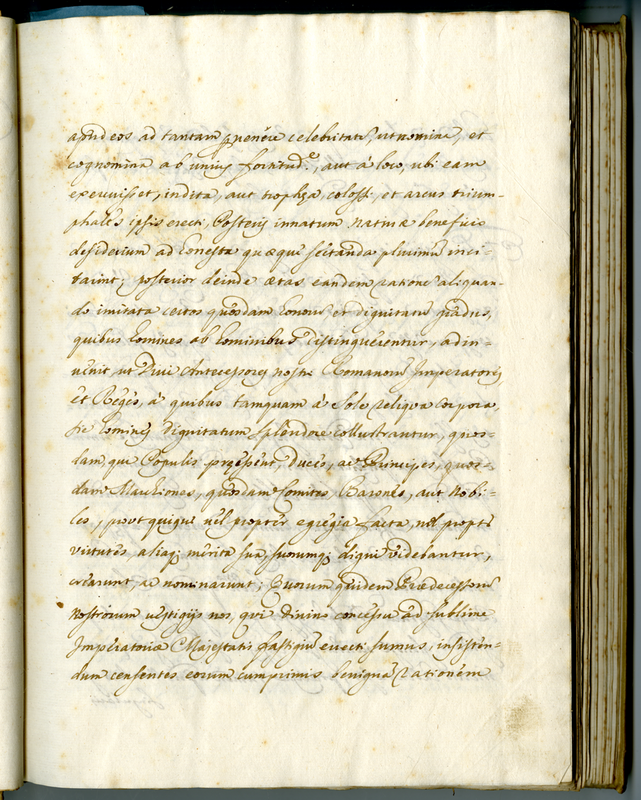 apud eos ad tantam pervenere celebritatē, ut nomina, et
cognomina ab unius fortitud.e, aut à loco, ubi eam
exeruisset, indita, aut trophæa, colossi, et arcus trium-
phales ipsis erecti, Posteris innatum naturæ beneficio
desiderium ad honesta quæque sectanda plurimū inci-
tarint; posterior deinde ætas eandem ratione aliquan-
do imitata certos quosdam honoris, et dignitatis gradus,
quibus homines ab hominibus distinguerentur, adin-
uenit, ut Diui Antecessores nostri Romanorū Imperatores
et Reges, à quibus tamquam à Sole reliqua corpora,
sic homines dignitatum splendore collustrantur, quos-
dam, qui Populis præessent, Duces, ac Principes, quos-
dam Marchiones, quosdam Comites, Barones, aut Nobi-
les, prout quique uel propter egregia facta, uel propter
virtutes, aliaq; merita sua, suorumq; digni videbantur,
crearunt, ac nominarunt; Quorum quidem Prædecessorū
nostrorum uestigijs nos, qui diuino concessu ad sublime
Imperatoriæ Majestatis fastigiū euecti sumus, insisten-
dum censentes eorum cumprimis benignā rationem